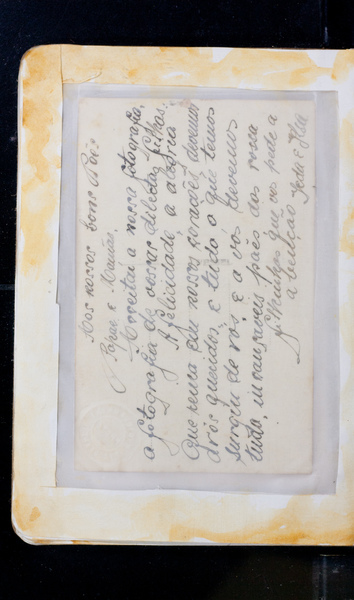 Aos nossos bons Paes
Papae e Mamãe,
Acceitai a nossa fotografia,
a fotografia de vossas dilectas filhas.
A felicidade a alegria
que reina em nossos corações devemos
a vós queridos e tudo o que temos
surgiu de vós e a vós devemos
tudo, incansaveis pães dos vossa
filhinhas que vos pede a
a benção Ieda e Ilda